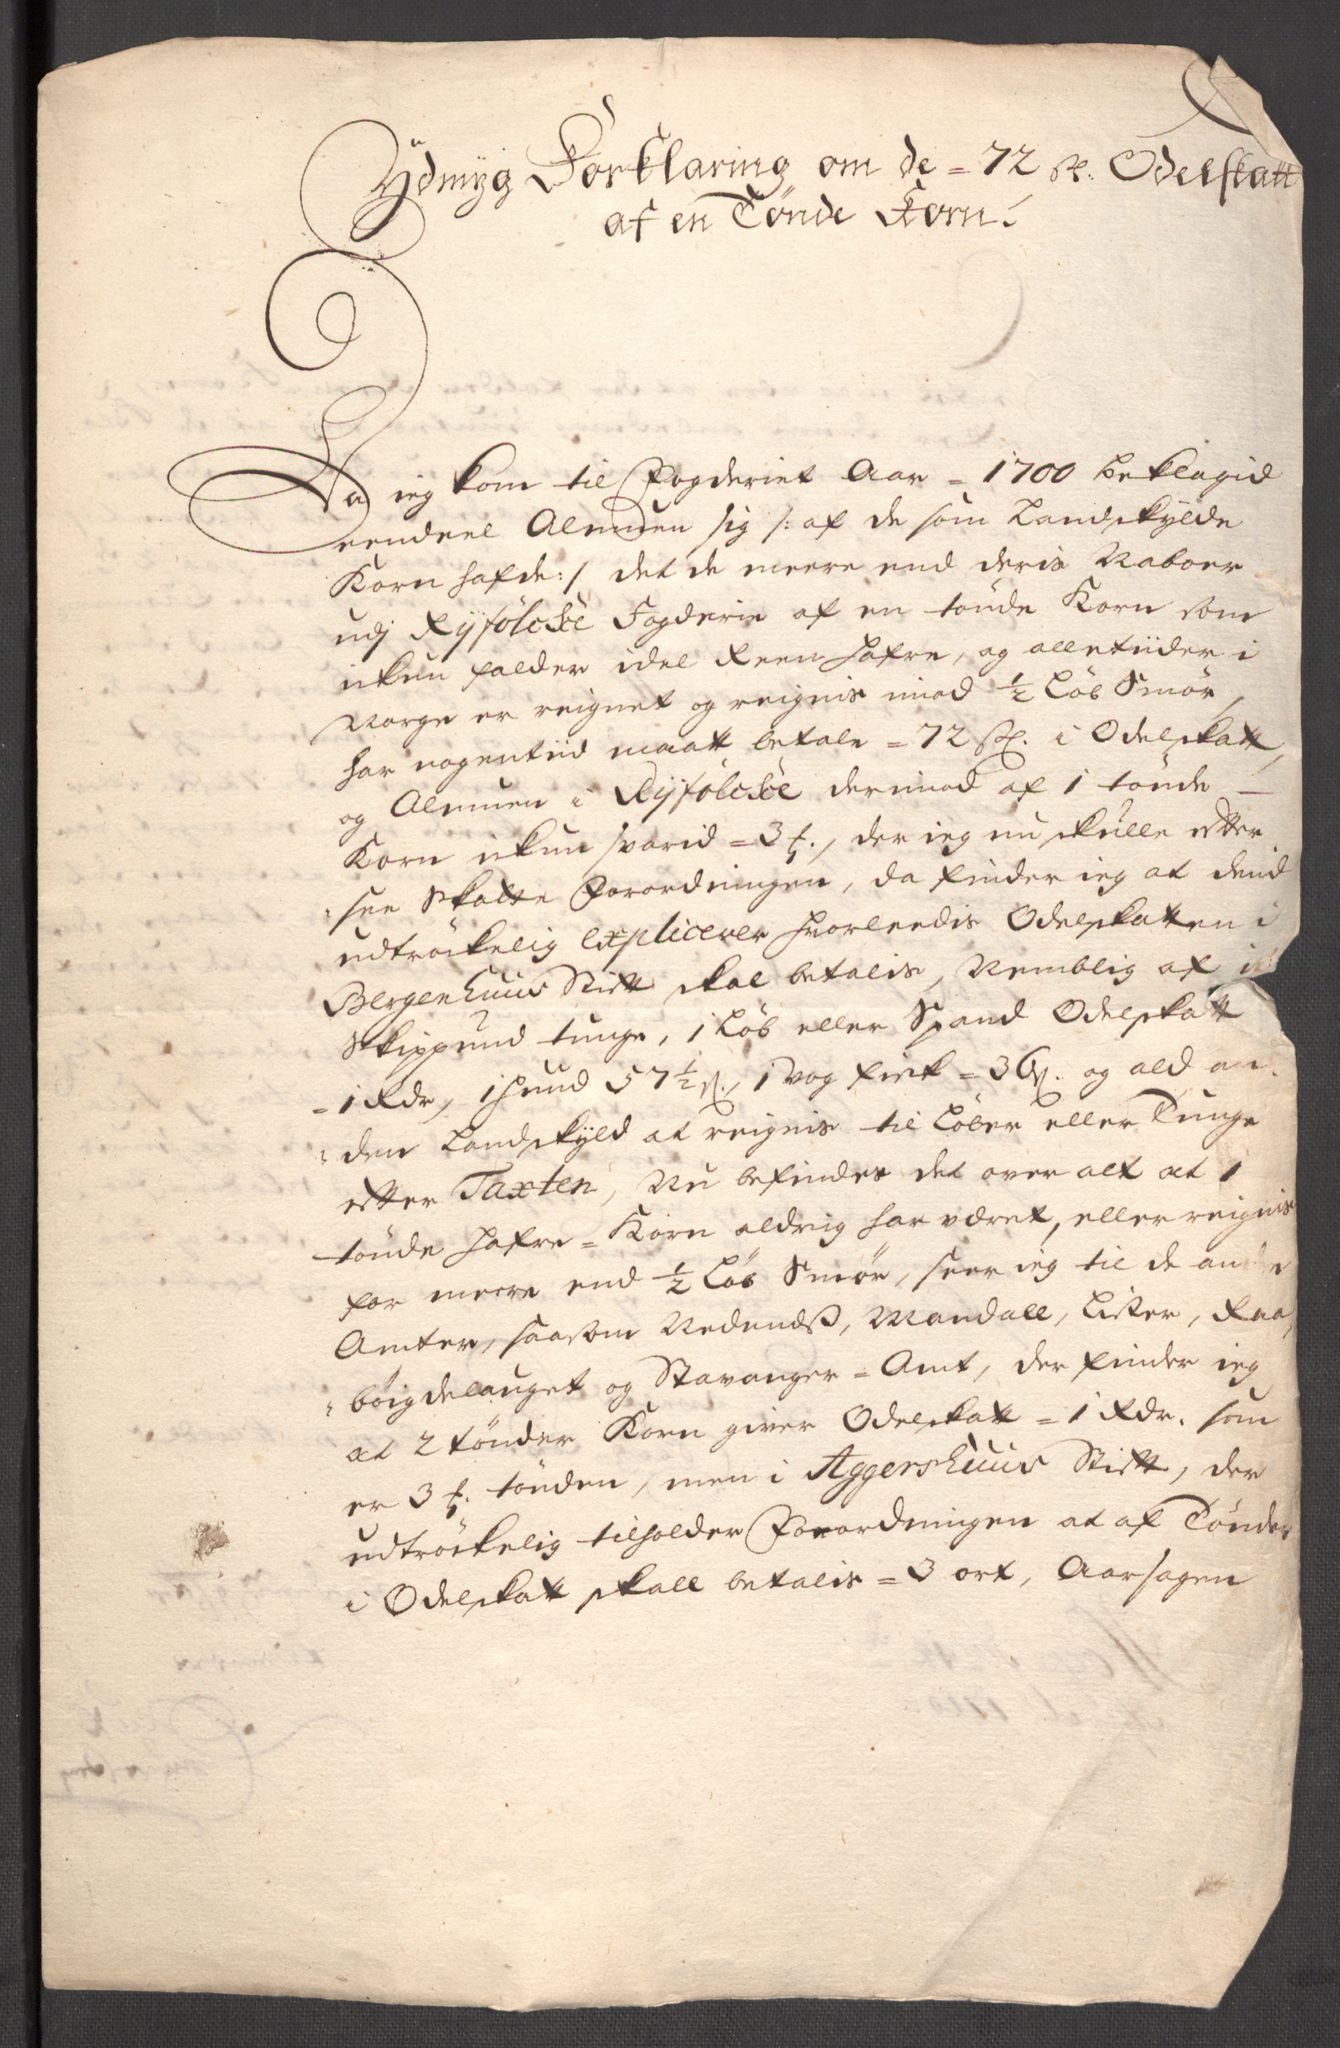 Ydmyg Forklaring om de = 72 sk. Odelskatt
af en Tønde Korn.
Da ieg kom til Fogderiet Aar = 1700 beklagid
eendeel Almuen sig /: af de som Landskylde
Korn hafde :/ det de meere end deris Naboer
udj Ryfölcke Fogderie af en tönde Korn som
ikun falder idel Reen Hafre, og alletiider i
Norge er reignet og reignis imod ½ Löb Smör,
har nogentiid maatt betale = 72 sk. i Odelskatt,
og Almuen i Ryfölcke derimod af 1 tönde
Korn ikun svarid = 3 , der ieg nu skulle efter
see Skatte Forordningen, da finder ieg at dend
udtröckelig explicerer hvorleedis Odelskatten i
Bergenhuus Stift skal betalis, Nemblig af
Skippund tunge, 1 Löb eller Spand Odelskatt
= 1 Rdr, 1 Huud 57½ s., 1 Vog fisk = 36 s. og ald an-
den Landskyld at reignis til Löber eller Tunge
efter Taxten, Nu befindes det over alt at 1
tönde Hafre = Korn aldrig har været, eller reignis
for meere end ½ Löb Smör, seer ieg til de andre
Amter, saasom Nedenes, Mandall, Lister, Raa-
böigdelauget og Stavanger = Amt, der finder ieg
at 2 tönder Korn giver Odelskatt = 1 Rdr. som
er 3 tönden, men i Aggershuus Stift, der
udtröckelig tilholder Forordningen at af Tönder
i Odelskatt skall betalis = 3 ort, Aarsagen